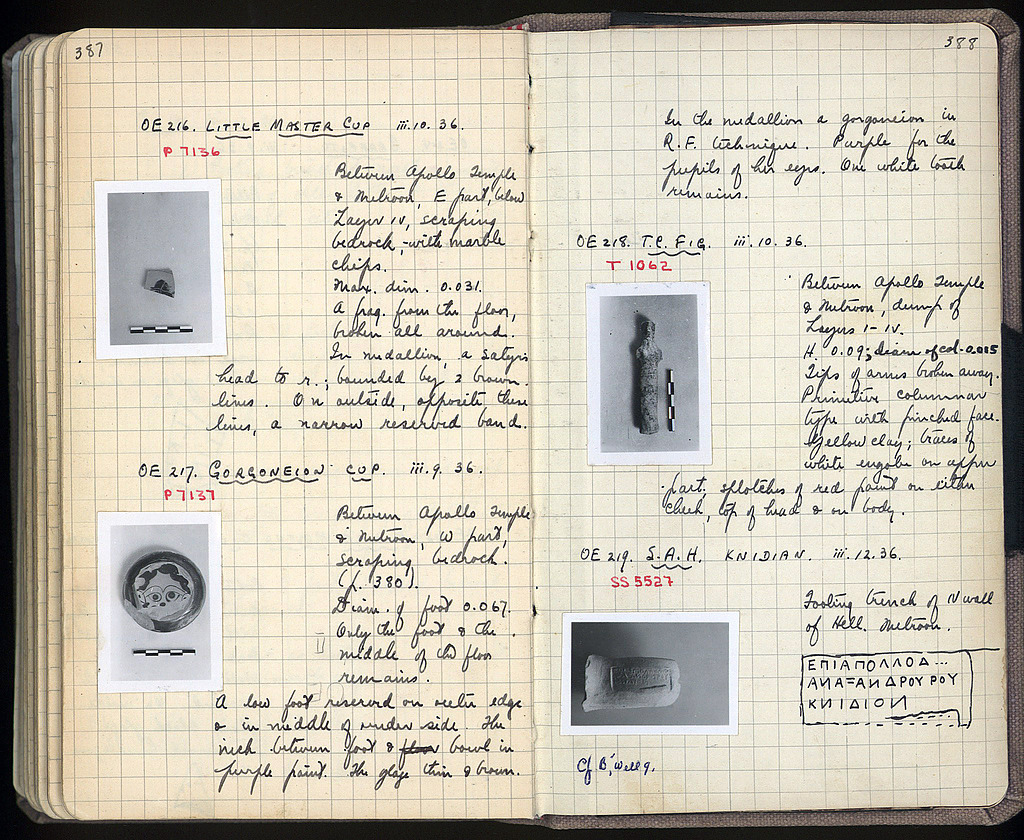 387
OE 216. LITTLE MASTER CUP iii.10.36.
P 7136
Between Apollo Temple
& Metroon, E part, below
Layer IV, scraping
bedrock, - with marble
chips.
Max. dim. 0.031.
A frag. from the floor,
broken all around.
In medallion, a satyr's
head to r.; bounded by 2 brown
lines. On outside, opposite these
lines, a narrow reserved band.
OE 217. GORGONEION CUP. iii.9.36.
P 7137
Between Apollo Temple
& Metroon, W part,
scraping bedrock.
(f. 380).
Diam. of foot 0.067.
Only the foot & the
middle of the floor
remains.
A low foot reserved on outer edge
& in middle of under side. The
neck between foot & floor bowl in
purple paint. The glaze thin & brown.
388
In the medallion a gorgoneion in
R.F. technique. Purple for the
pupils of her eyes. One white tooth
remains.
OE 218. T.C. FIG. iii.10.36.
T 1062
Between Apollo Temple
& Metroon, dump of
Layers I-IV.
H. 0.09; Diam of col. 0.015
Tips of arms broken away.
Primitive columnar
type with pinched face.
Yellow clay; traces of
white engobe on upper
part, splotches of red paint on either
cheek, top of head & on body.
OE 219. S.A.H. KNIDIAN. iii.12.36.
SS 5527
Footing trench of N wall
of Hell. Metroon.
ΕΠΙΑΠΟΛΛΟΔ...
ΑΝΑΞΑΝΔΡΟΥΡΟΥ
ΚΝΙΔΙΟΝ
Cf B', Well 9.